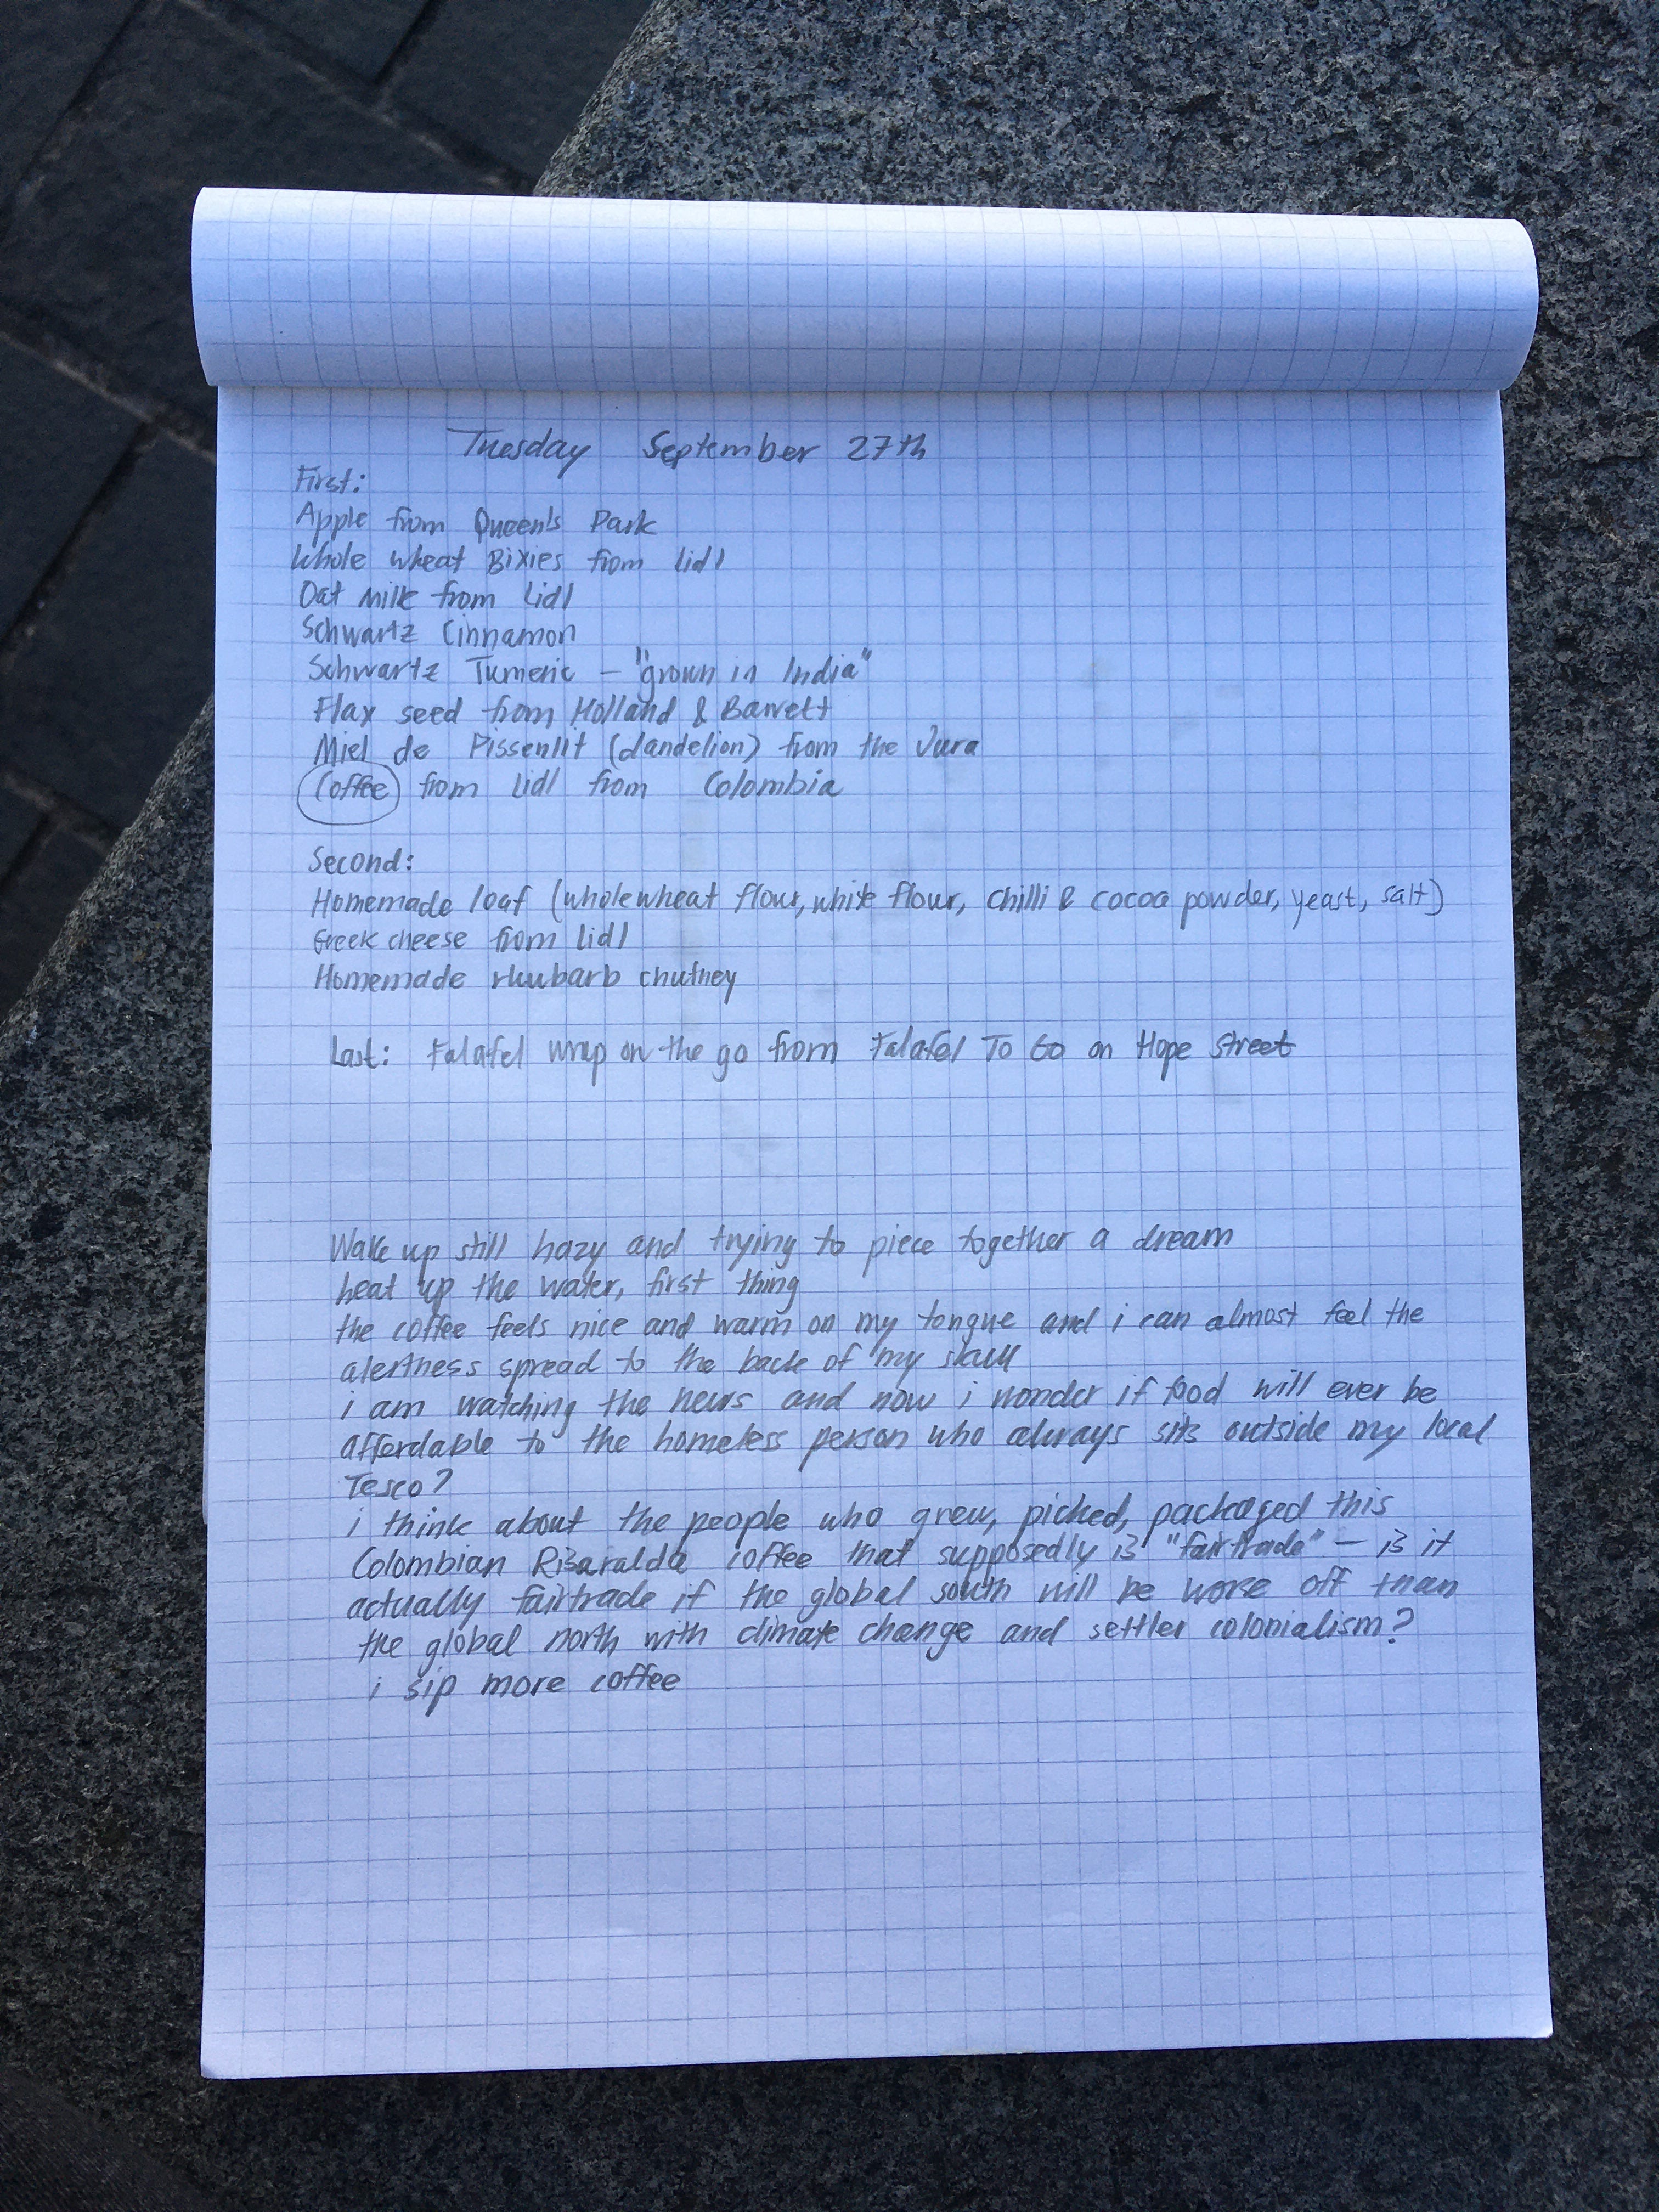 Tuesday September 27th
First:
Apple from Queen's Park
Whole wheat Bixies from Lidl
Oat Milk from Lidl
Schwartz Cinnamon
Schwartz Tumeric – "grown in India"
Flax seed from Holland & Barrett
Miel de Pissenlit (dandelion) from the Jura
Coffee from Lidl from Colombia
Second:
Homemade loaf (wholewheat flour, white flour, chilli & cocoa powder, yeast, salt)
Greek cheese from Lidl
Homemade rhubarb chutney
Last: Falafel wrap on the go from Falafel To Go on Hope Street
Wake up still hazy and trying to piece together a dream
heat up the water, first thing
the coffee feels nice and warm on my tongue and i can almost feel the
alertness spread to the back of my skull
i am watching the news and now i wonder if food will ever be
affordable to the homeless person who always sits outside my local
Tesco?
i think about the people who grew, picked, packaged this
Colombian Risaralda coffee that supposedly is "fairtrade" – is it
actually fairtrade if the global south will be worse off than
the global north with climate change and settler colonialism?
i sip more coffee